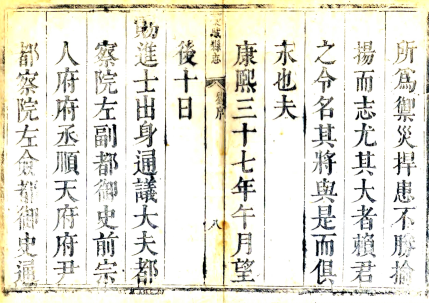 所為禦災捍患不勝掄
揚而志尤其大者賴君
之令名其將與是而俱
永也夫
康熙三十七年午月望
後十日
賜進士出身通議大夫都
察院左副都御史前宗
人府府丞順天府府尹
都察院左僉都御史通
縣志
八